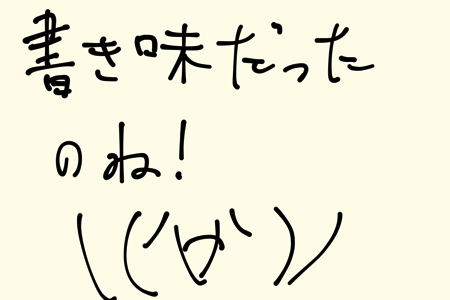 書き味だった
のね!
\(´∀`)/